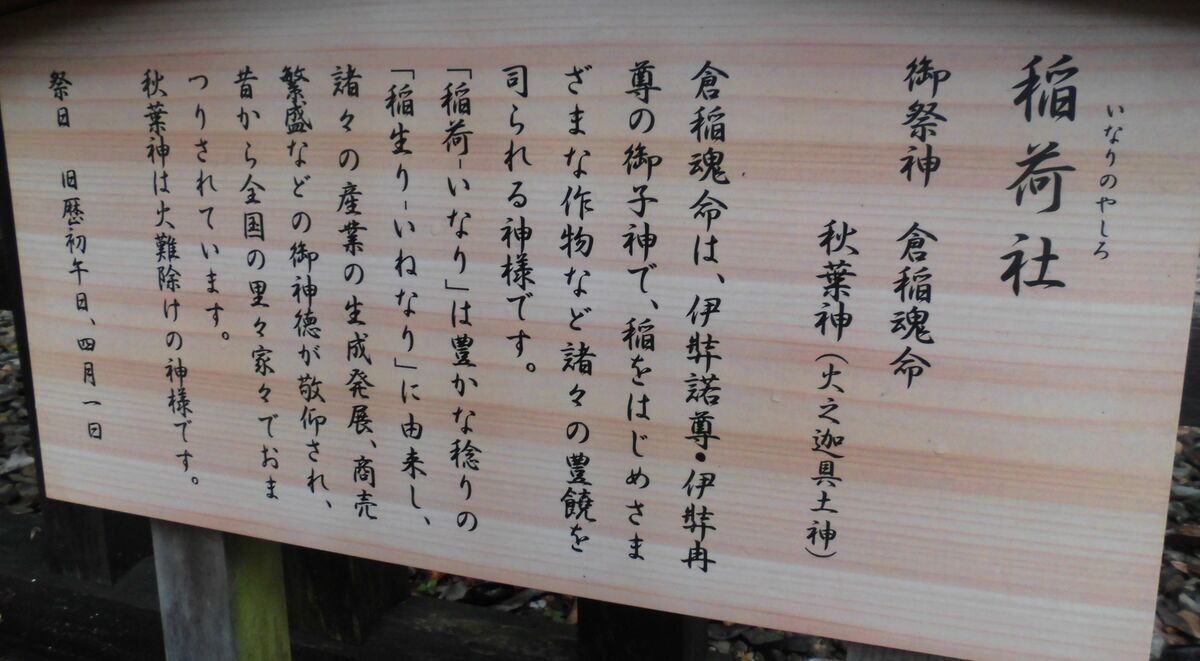 いなりのやしろ
稲荷社
御祭神 倉稲魂命
秋葉神(火之迦具土神)
倉稲魂命は、伊弉諾尊・伊弉冉
尊の御子神で、稲をはじめさま
ざまな作物など諸々の豊饒を
司られる神様です。
「稲荷-いなり」は豊かな稔りの
「稲生り-いねなり」に由来し、
諸々の産業の生成発展、商売
繁盛などの御神徳が敬仰され、
昔から全国の里々家々でおま
つりされています。
秋葉神は火難除けの神様です。
祭日 旧暦初午日、四月一日